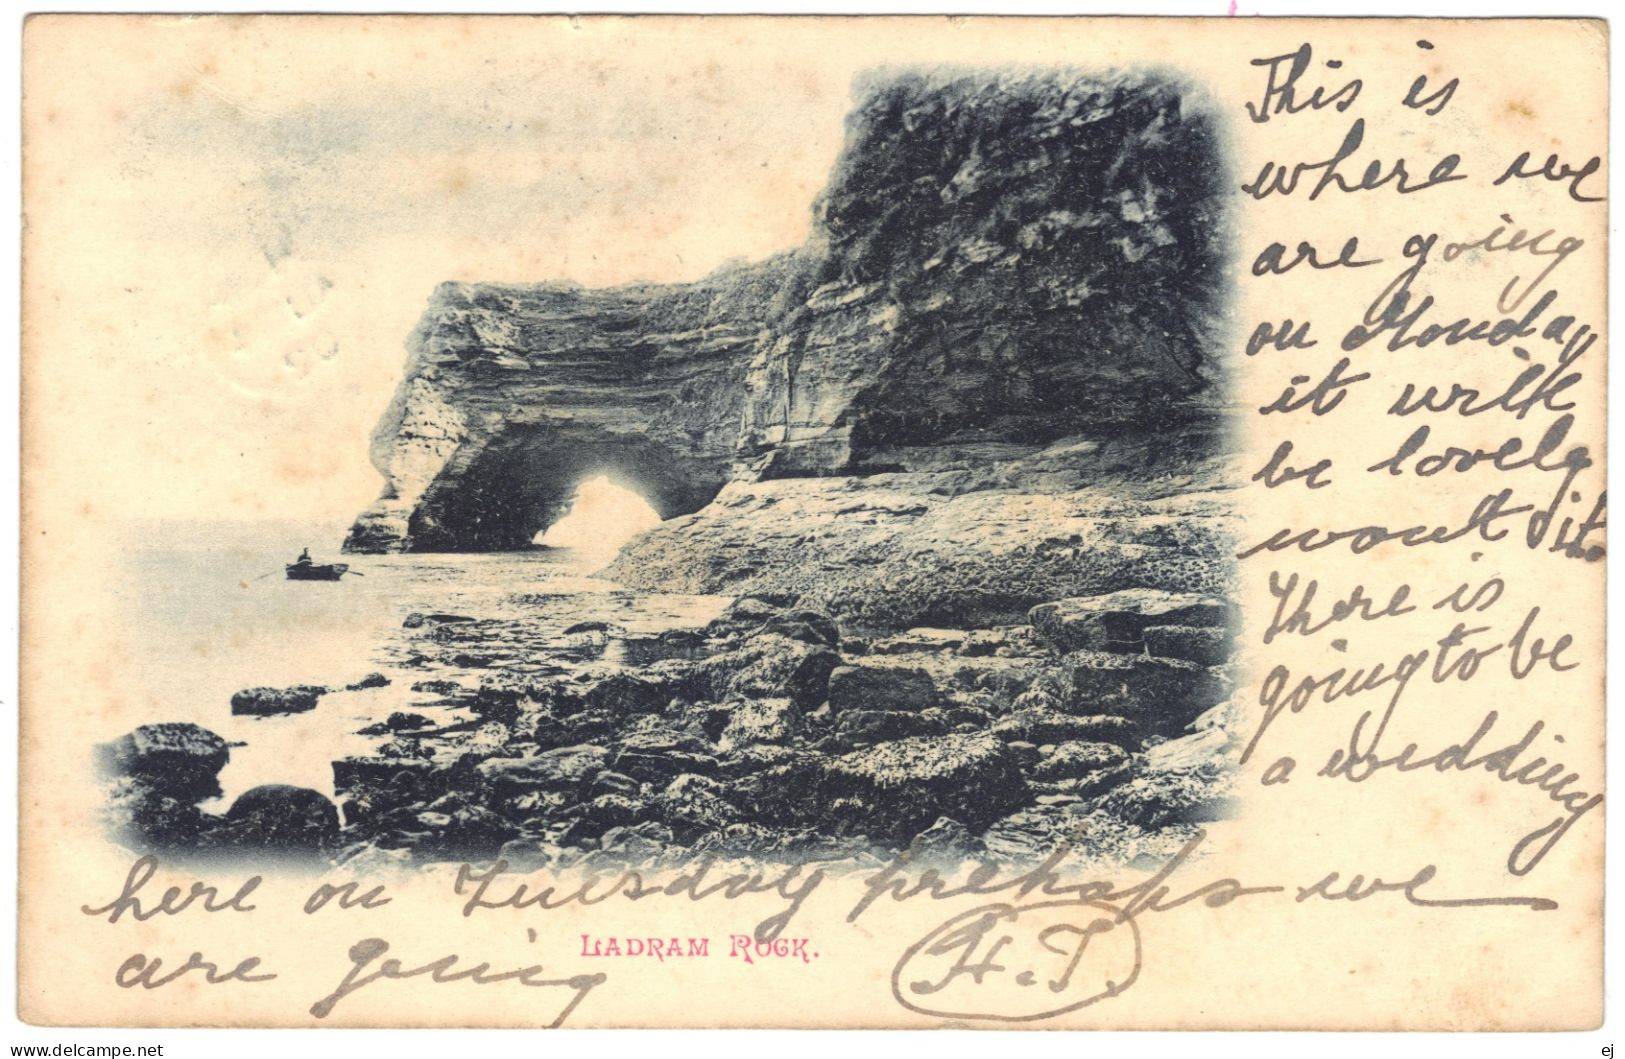 This is
where we
are going
on Monday
it will
be lovely
wont it.
There is
going to be
a wedding
here on Tuesday prehaps we
are going
LADRAM ROCK.
H.T.
www.delcampe.net
ej